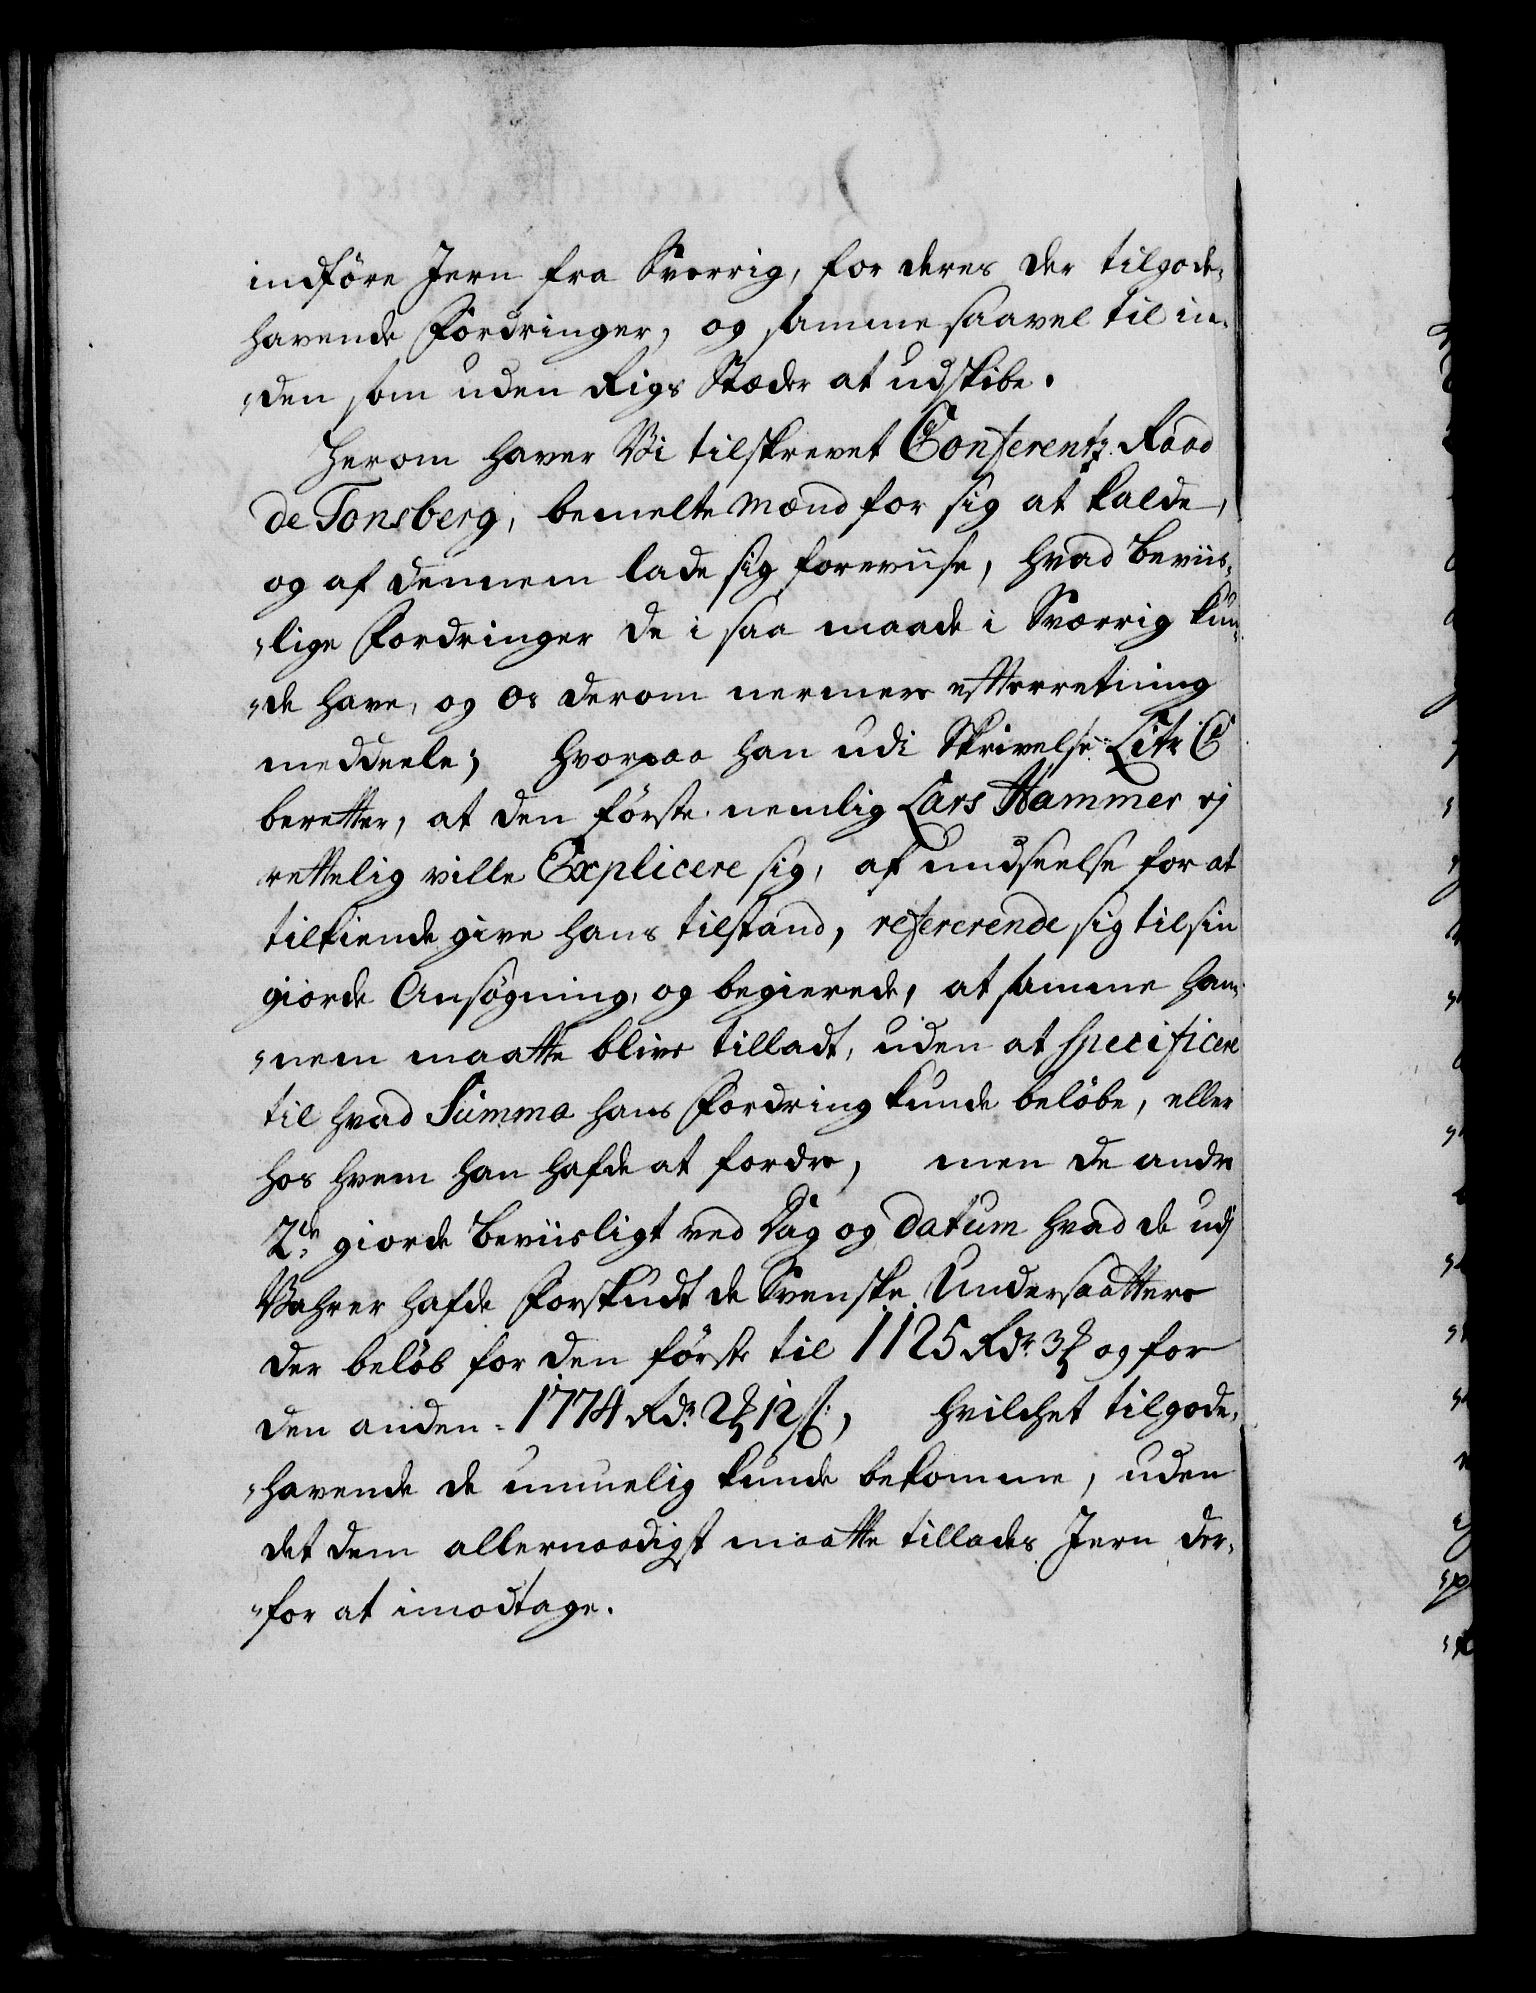 indføre Jern fra Sverrig, for deres der tilgode-
havende Fordringer, og samme saavel til in-
"den som uden Rigs Stæder at udskibe.
Herom haver Vi tilskrevet Conferentz Raad
de Tonsberg, bemelte Mænd for sig at kalde,
og af dennem lade sig foreviise, hvad Beviis-
"lige Fordringer de i saa maade i Sværrig kun-
"de have, og os derom nermere efterretning
meddeele; hvorpaa han udi Skrivelse Litr C
beretter, at den første nemlig Lars Hammer ej
rettelig ville Explicere sig, af undseelse for at
tilkiende give hans tilstand, refererende sig til sin
giorde Ansøgning, og begierede, at samme ham-
"nem maatte blive tilladt, uden at specificere
til hvad Summa hans Fordring kunde beløbe, eller
hos hvem han hafde at fordre, men de andre
2de giorde beviisligt ved Dag og Datum hvad de udj
Vahrer hafde Forskudt de Svenske Undersaattere
der beløb for den første til 1125 Rdr 3 ꝸ og for
den anden = 1774 Rdr 2 ꝸ 12 ß:, hvilchet tilgode-
"havende de umuelig kunde bekomme, uden
det dem allernaadigst maatte tillades Jern der-
"for at imodtage.